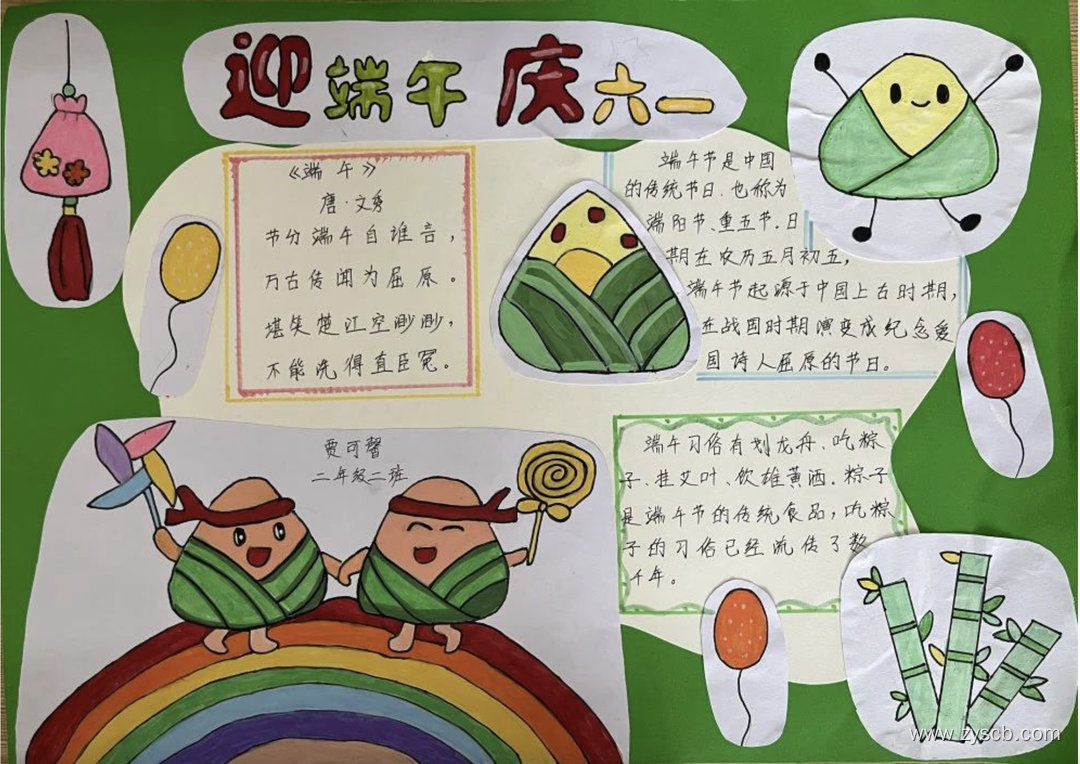 迎端午 庆六一
《端午》
唐·文秀
节分端午自谁言，
万古传闻为屈原。
堪笑楚江空渺渺，
不能洗得直臣冤。
端午节是中国
的传统节日.也称为
端阳节、重五节.日
期在农历五月初五，
端午节起源于中国上古时期，
在战国时期演变成纪念爱
国诗人屈原的节日。
贾可馨
二年级二班
端午习俗有划龙舟、吃粽
子、挂艾叶、饮雄黄酒.粽子
是端午节的传统食品，吃粽
子的习俗已经流传了数
千年。
www.zyscb.com